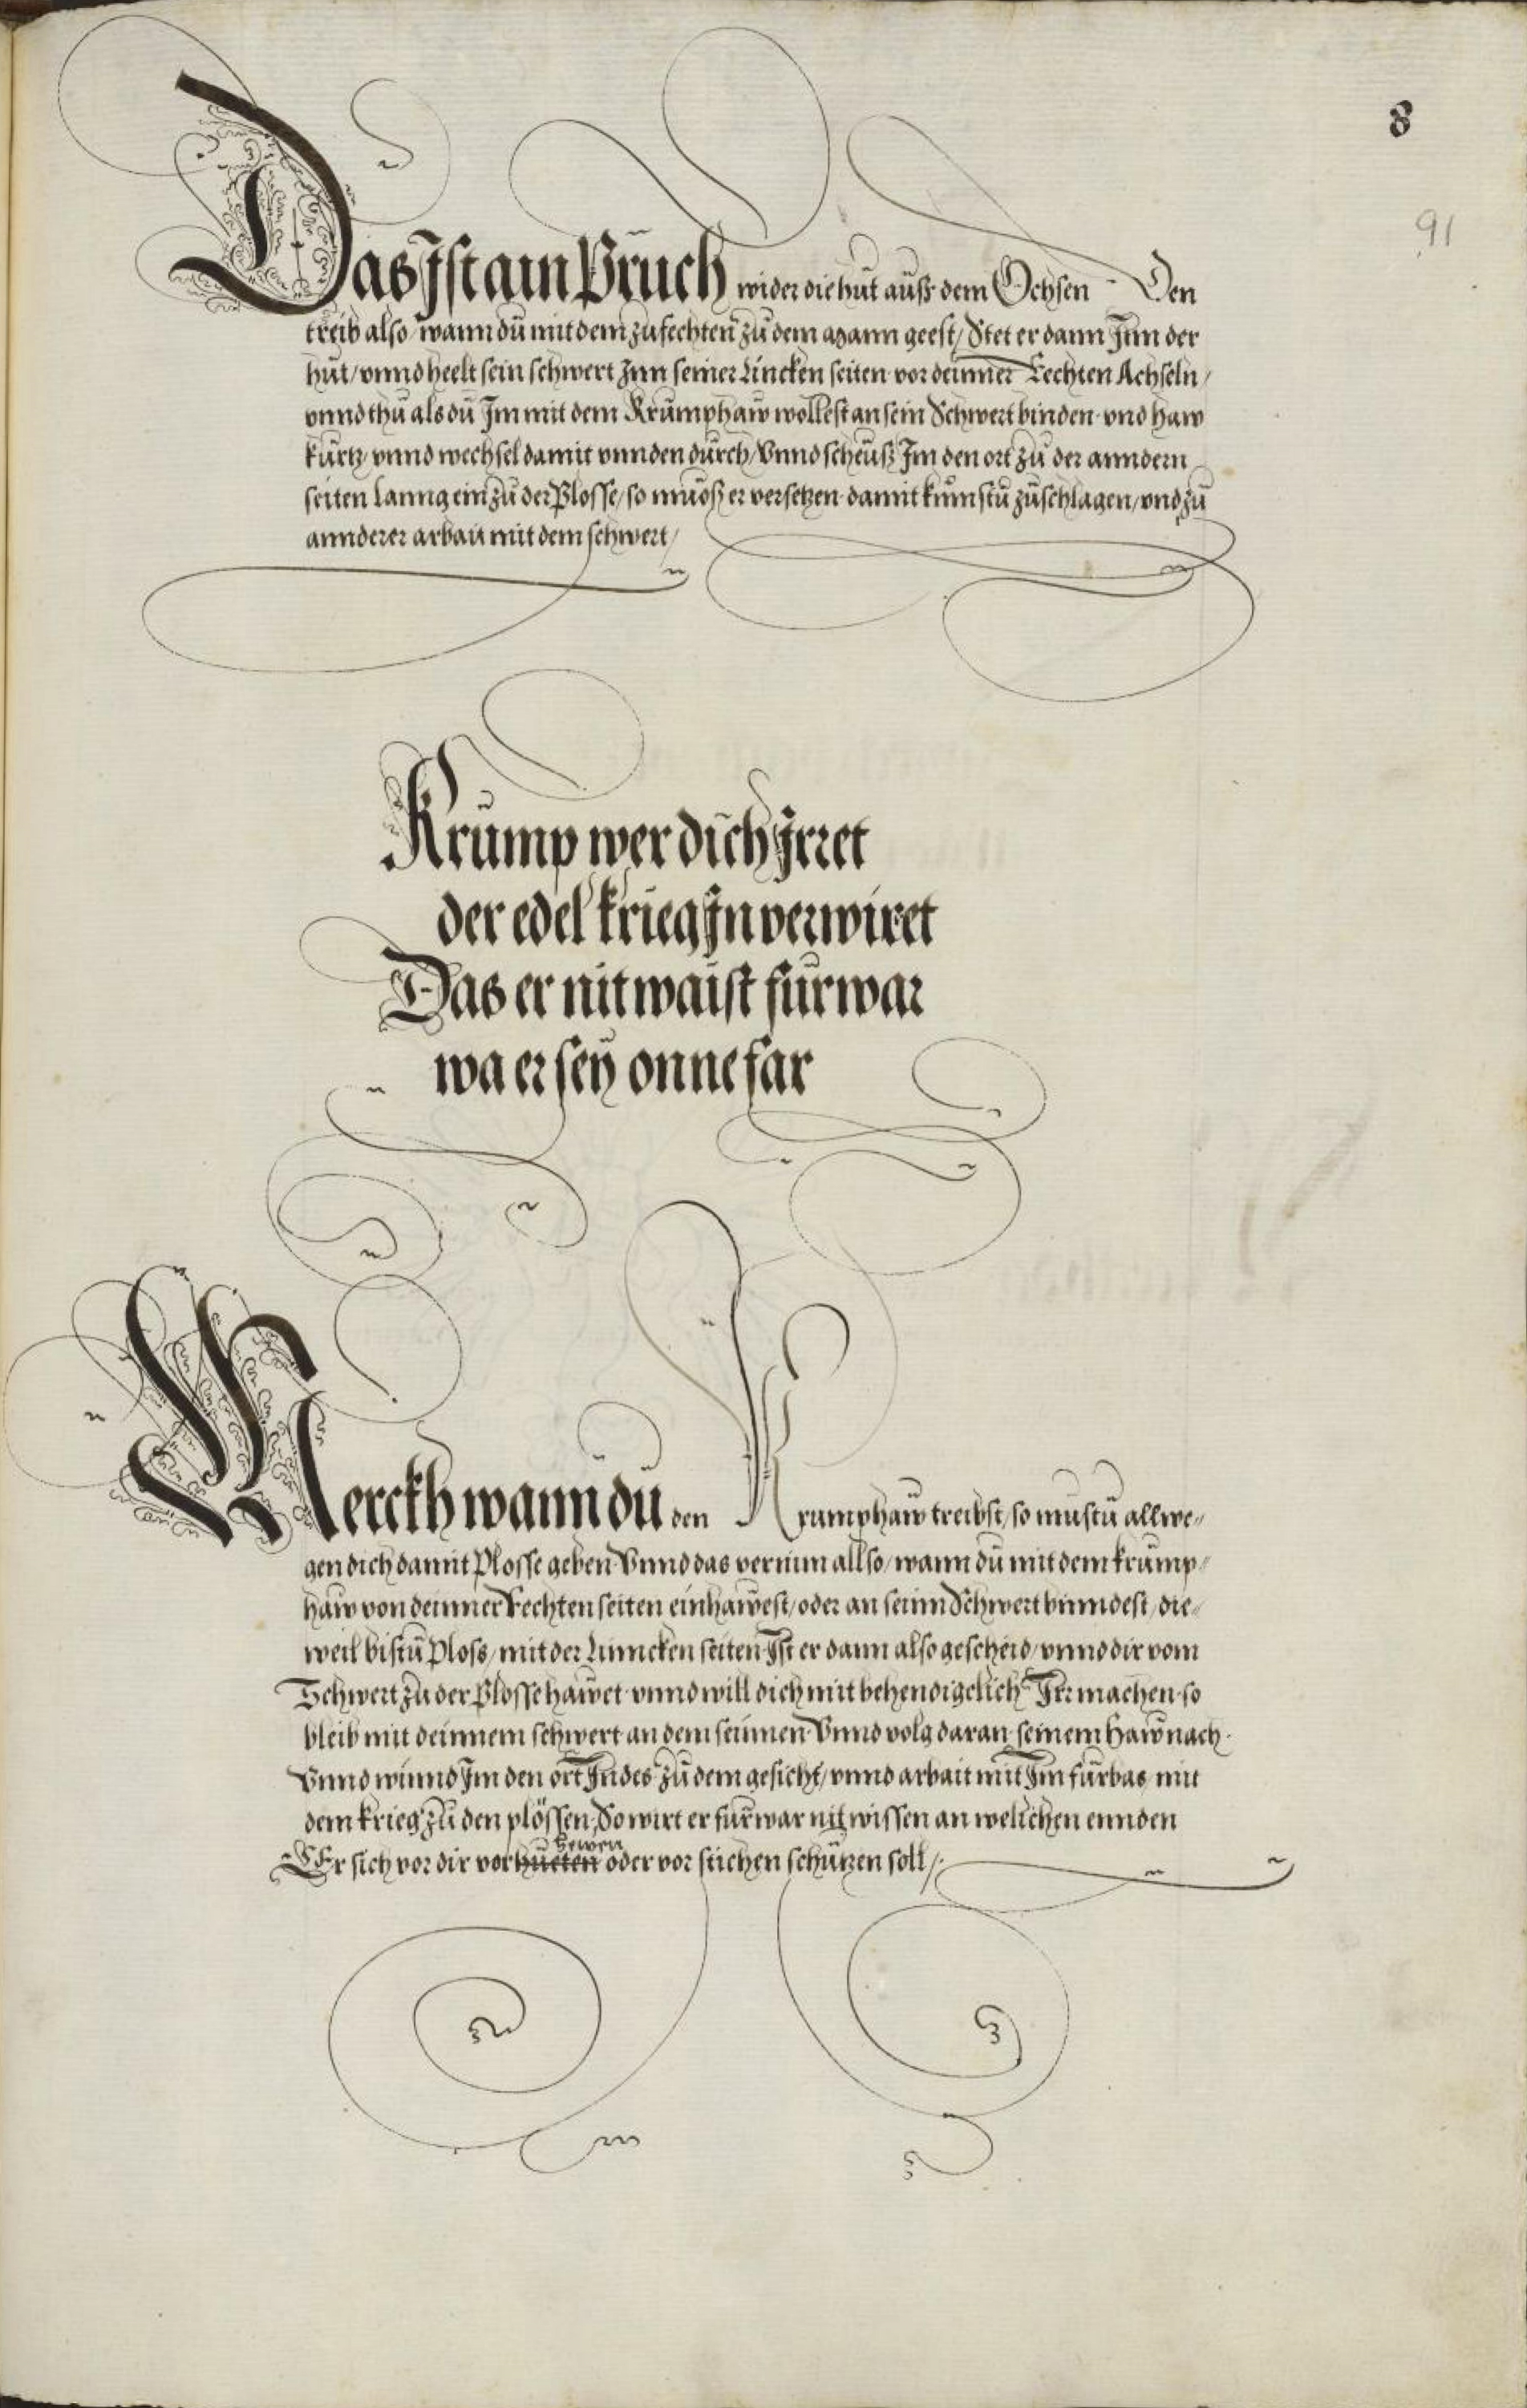 8
91
Das Ist ain Bruch wider die hut auß dem Ochsen Den
treib also wann du mit dem zufechten zu dem mann geest / Stet er dann Inn der
hut / vnnd heelt sein schwert Inn seiner Lincken seiten vor deinner Rechten Achseln /
vnnd thu als du Im mit dem Krumphaw wollest an sein Schwert binden vnd haw
kurtz vnnd wechsel damit vnnden durch / Vnnd scheuß Im den ort zu der anndern
seiten lanng ein zu der Plosse / so muoß er versetzen damit kumstu zu schlagen / vnd zu
annderer arbait mit dem schwert /
Krump wer dich Irret
der edel krieg In verwiret
Das er nit waist furwar
wa er sey onne far
Merckh wann du den Krumphaw treibst / so mustu allwe〃
gen dich damit Plosse geben Vnnd das vernim allso / wann du mit dem krump〃
haw von deinner Rechten seiten einhawest / oder an seinn Schwert binndest / die〃
weil bistu Ploss / mit der Linncken seiten Ist er dann also gescheid / vnnd dir vom
Schwert zu der Plosse hawet vnnd will dich mit behendigelich Irr machen so
bleib mit deinnem schwert an dem seinnen Vnnd volg daran seinem Haw nach.
Vnnd winnd Im den ort Indes zu dem gesicht / vnnd arbait mit Im furbas mit
dem krieg zu den plössen, So wirt er furwar nit wissen an welichen ennden
hewen
Er sich vor dir vor hueten oder vor stichen schützen soll /.